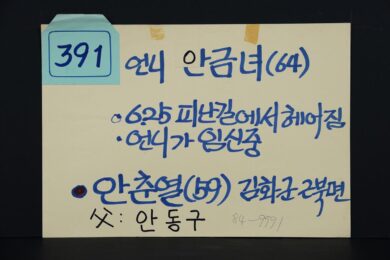 391
언니 안금녀(64)
• 6.25 피난길에서 헤어짐
• 언니가 임신중
• 안춘열(59) 김화군 근북면
父: 안동구
84-9591